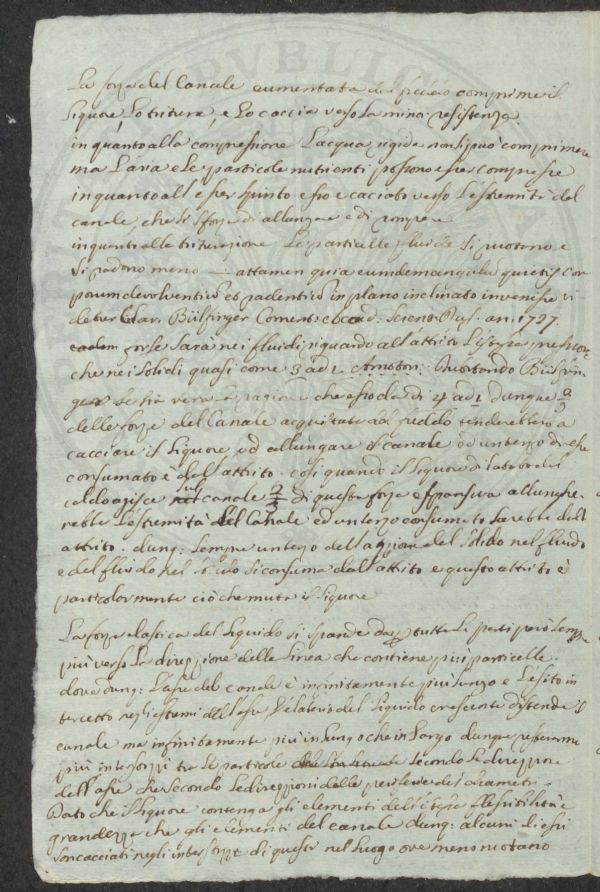 La forza del Canale aumentata dal freddo comprime il
liquore, lo tritura, e lo caccia verso la minor resistenza
in quanto alla compressione L'acqua rigida non si può comprimere
ma l'aria e le particole nutrienti possono esser compresse
in quanto all'esser spinto esso e cacciato verso l'estremità del
canale, che si sforza di allungare e di rompere
in quanto alla triturazione Le particelle fluide si ruotano e
si radono meno — attamen quia eumdem angulum quietis cor
porum devolventium et radentium in plano inclinato invenisse vi
detur Clar. Bülfinger Coment: Acad: Scient: Rus. an. 1727.
forse sarà nei fluidi riguardo all'attrito l'istessa pressione
che nei solidi quasi come 3 ad 1 Amoton: Mostrando Bülfin
ger se sia vera
delle forze del Canale acquistate dal freddo tenderebbero a
cacciare il liquore, ed allungare il canale ed un terzo di esse
consumato è dall'attrito. così quando il liquore dilatato dal
caldo agisce sul canale 2/3 di questa forza espansiva allunghe-
rebbe l'estremità del Canale ed un terzo consumato sarebbe dall'
attrito. dunq: sempre un terzo dell'azzione del solido nel fluido
e del fluido nel solido si consuma dall'attrito e questo attrito è
particolarmente ciò che muta il liquore
La forza elastica del liquido si spande da per tutte le parti però sempre
più verso la direzzione della linea che contiene più particelle.
dove dunq: l'asse del canale è infinitamente più lungo e l'esito in
tercetto negli estremi dell'asse l'elaterio del liquido crescente distende il
canale ma infinitamente più in lungo che in largo dunque
più interstizi tra le particole secondo la direzzione
dell'asse che secondo le direzzioni delle del diametro
Dato che il liquore contenga gli elementi dell'istessa flessibilità e
grandezza che gli elementi del canale dunq: alcuni di essi
son cacciati negli interstizi di questi nel luogo ove meno ruotano